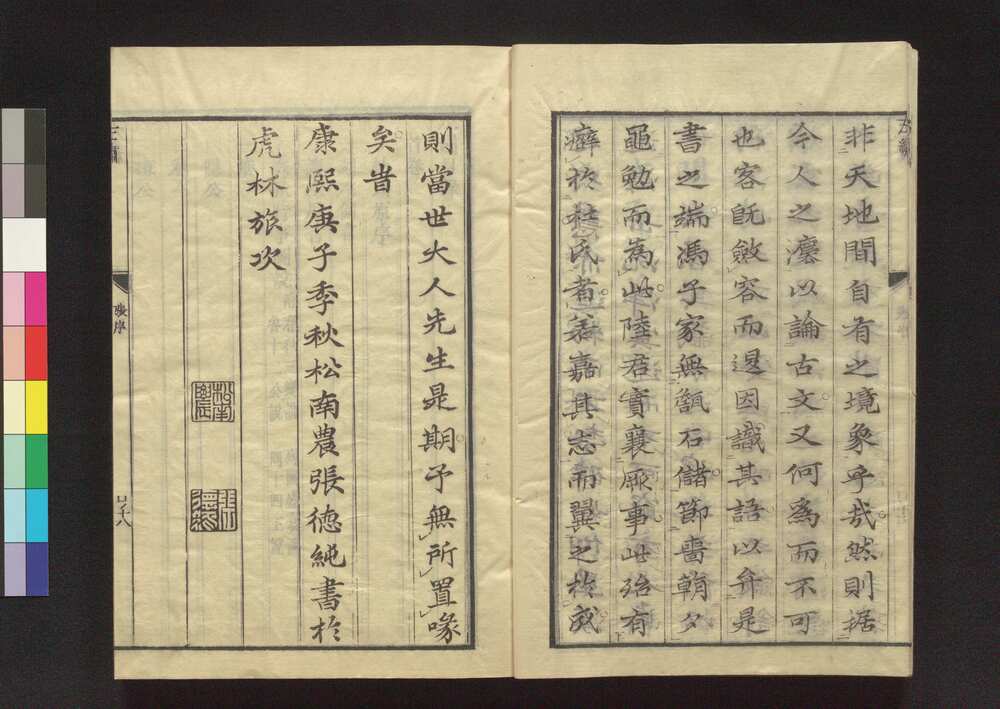 非天地間自有之境象乎哉然則据
今人之瀍以論古文又何為而不可
也客旣斂容而退因識其語以弁是
書之端馮子家無甔石儲節嗇朝夕
黽勉而為此陸君寶襄厥事此殆有
癖於桂氏者若嘉其志而翼之於成
則當世大人先生是期予無所置喙
矣旹
康熙庚子季秋松南農張德純書於
虎林旅次
張序